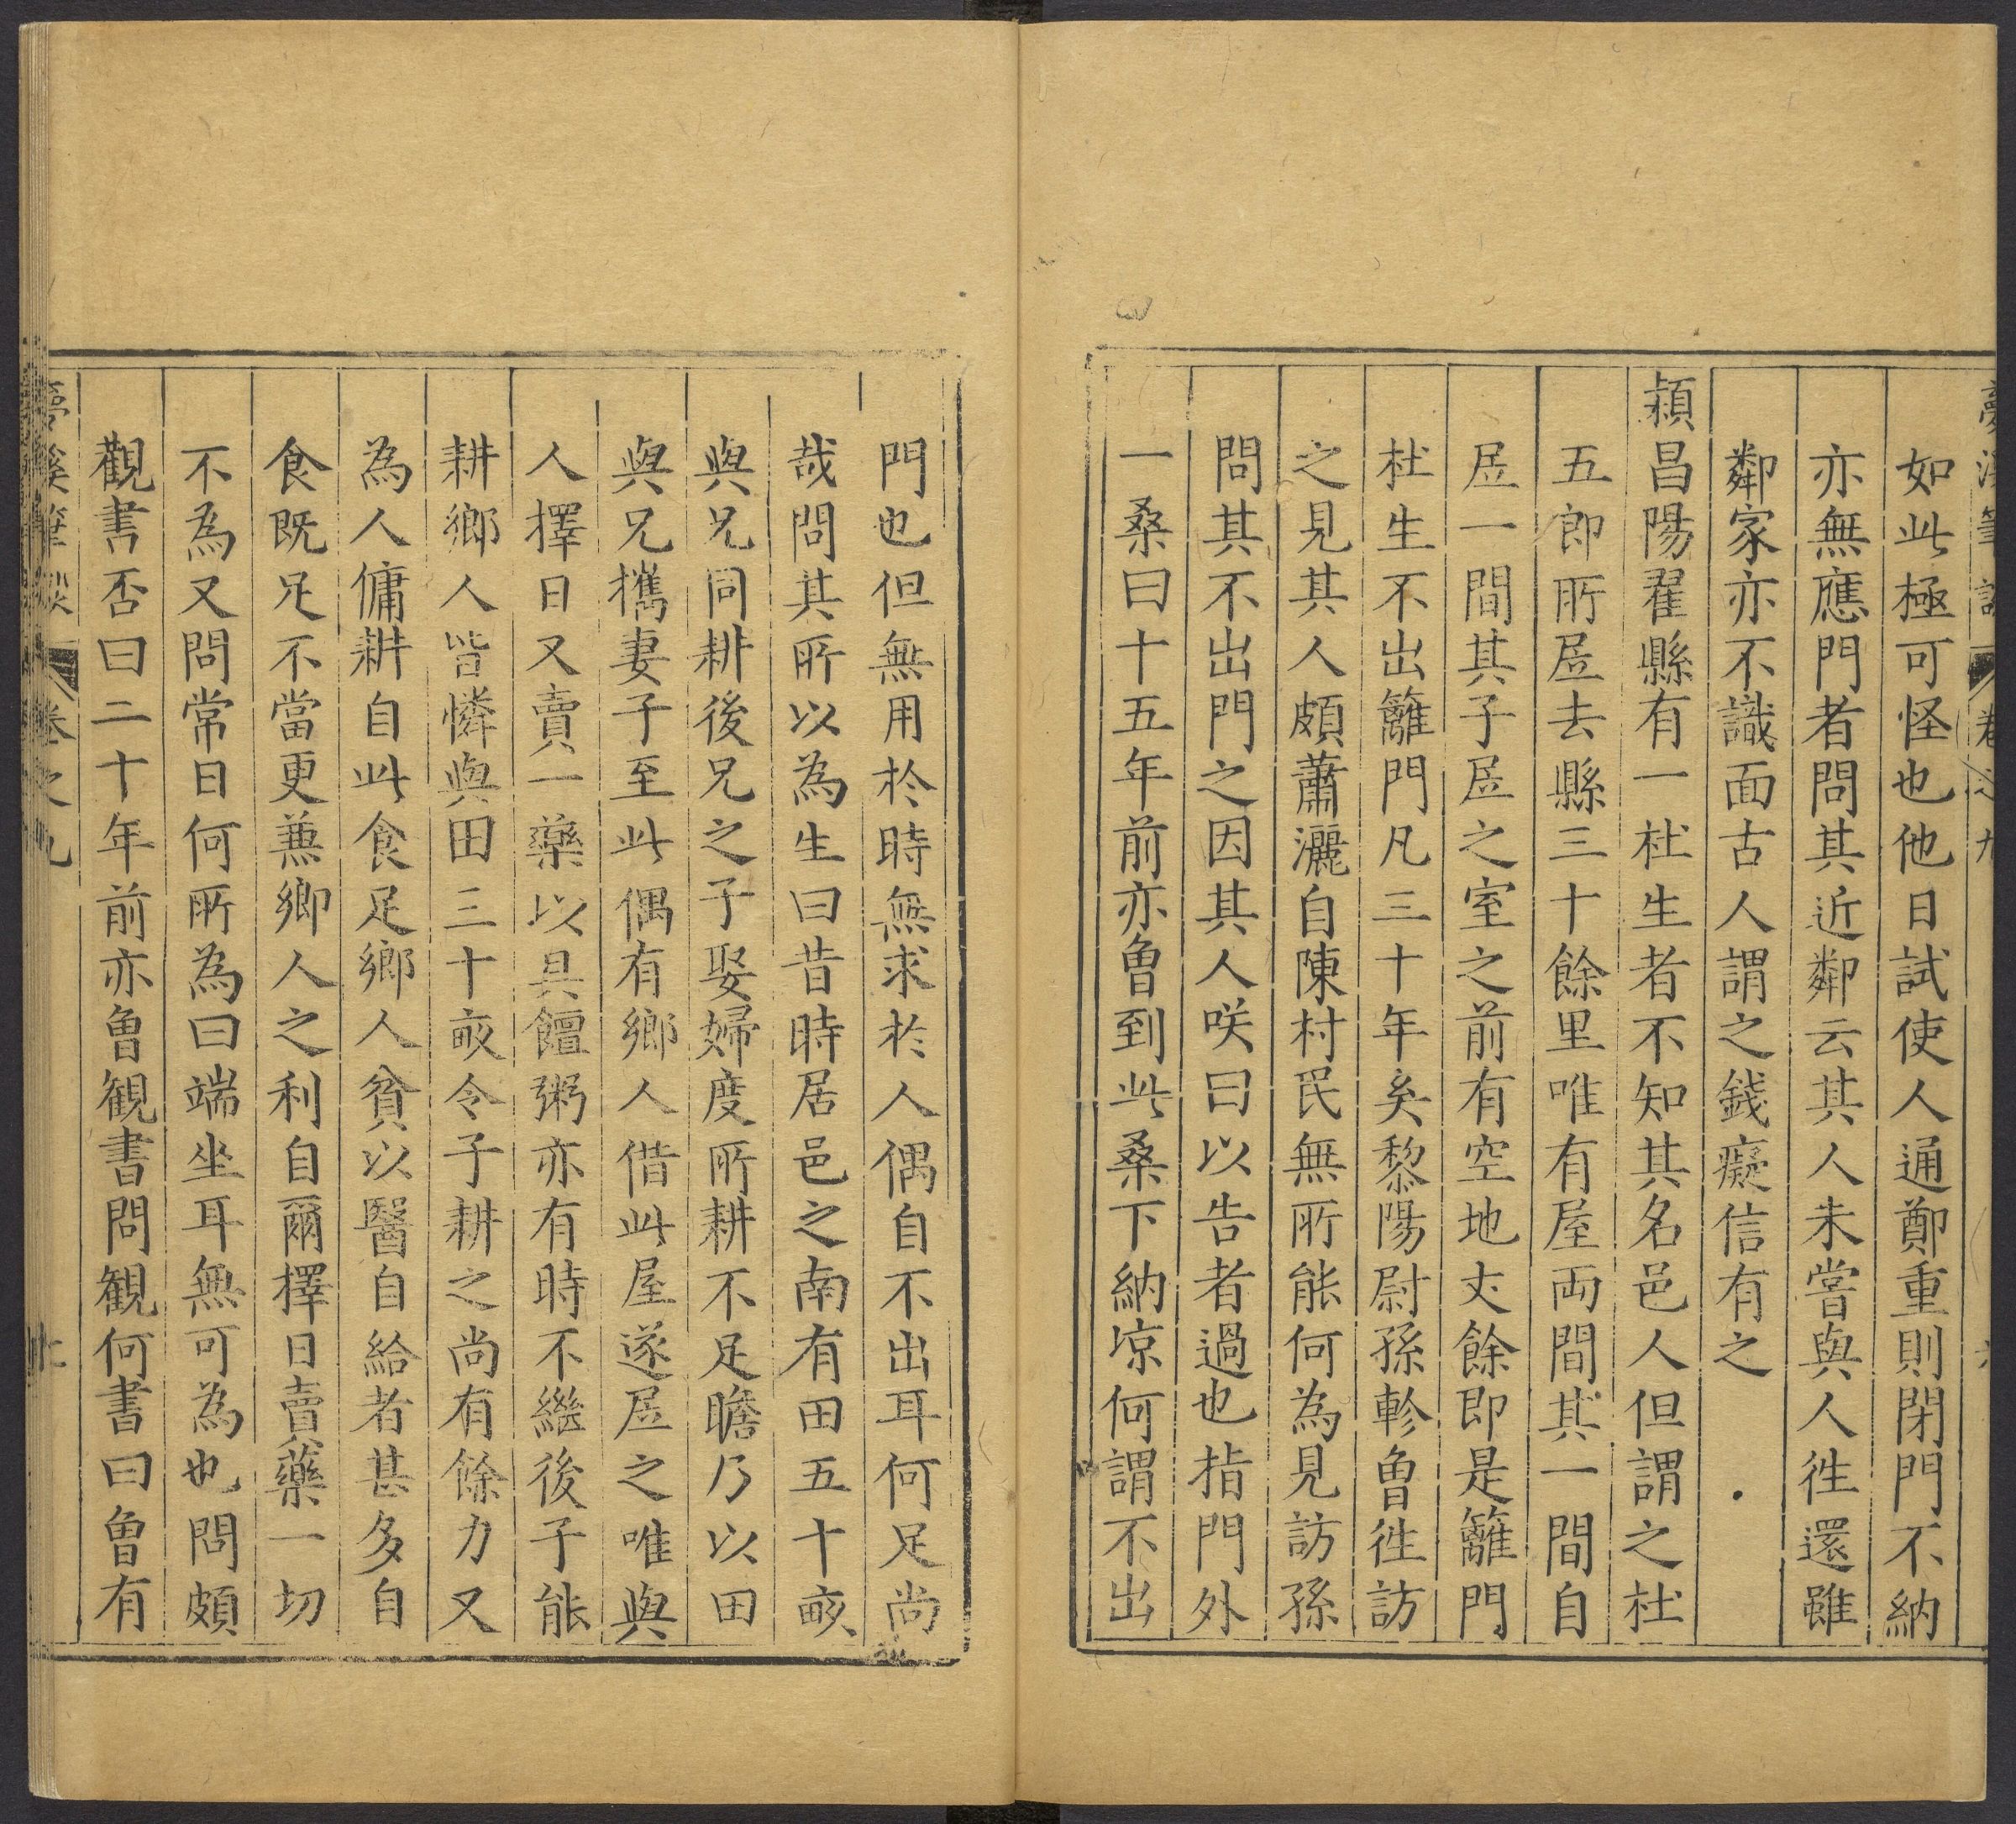 如此極可怪也他日試使人通鄭重則閉門不納
亦無應門者問其近鄰云其人未嘗與人徃還雖
鄰家亦不識面古人謂之錢癡信有之
潁昌陽翟縣有一杜生者不知其名邑人但謂之杜
五郎所居去縣三十餘里唯有屋両間其一間自
居一間其子居之室之前有空地丈餘即是籬門
杜生不出籬門凡三十年矣黎陽尉孫軫曽徃訪
之見其人頗蕭灑自陳村民無所能何為見訪孫
問其不出門之因其人咲曰以告者過也指門外
一桑曰十五年前亦曽到此桑下納凉何謂不出
門也但無用於時無求於人偶自不出耳何足尚
哉問其所以為生曰昔時居邑之南有田五十畝
與兄同耕後兄之子娶婦度所耕不足贍乃以田
與兄攜妻子至此偶有鄉人借此屋遂居之唯與
人擇日又賣一藥以具饘粥亦有時不繼後子能
耕鄉人皆憐與田三十畝令子耕之尚有餘力又
為人傭耕自此食足鄉人貧以醫自給者甚多自
食既足不當更兼鄉人之利自爾擇日賣藥一切
不為又問常日何所為曰端坐耳無可為也問頗
觀書否曰二十年前亦曽觀書問觀何書曰曽有
夢溪筆談 卷之九 七